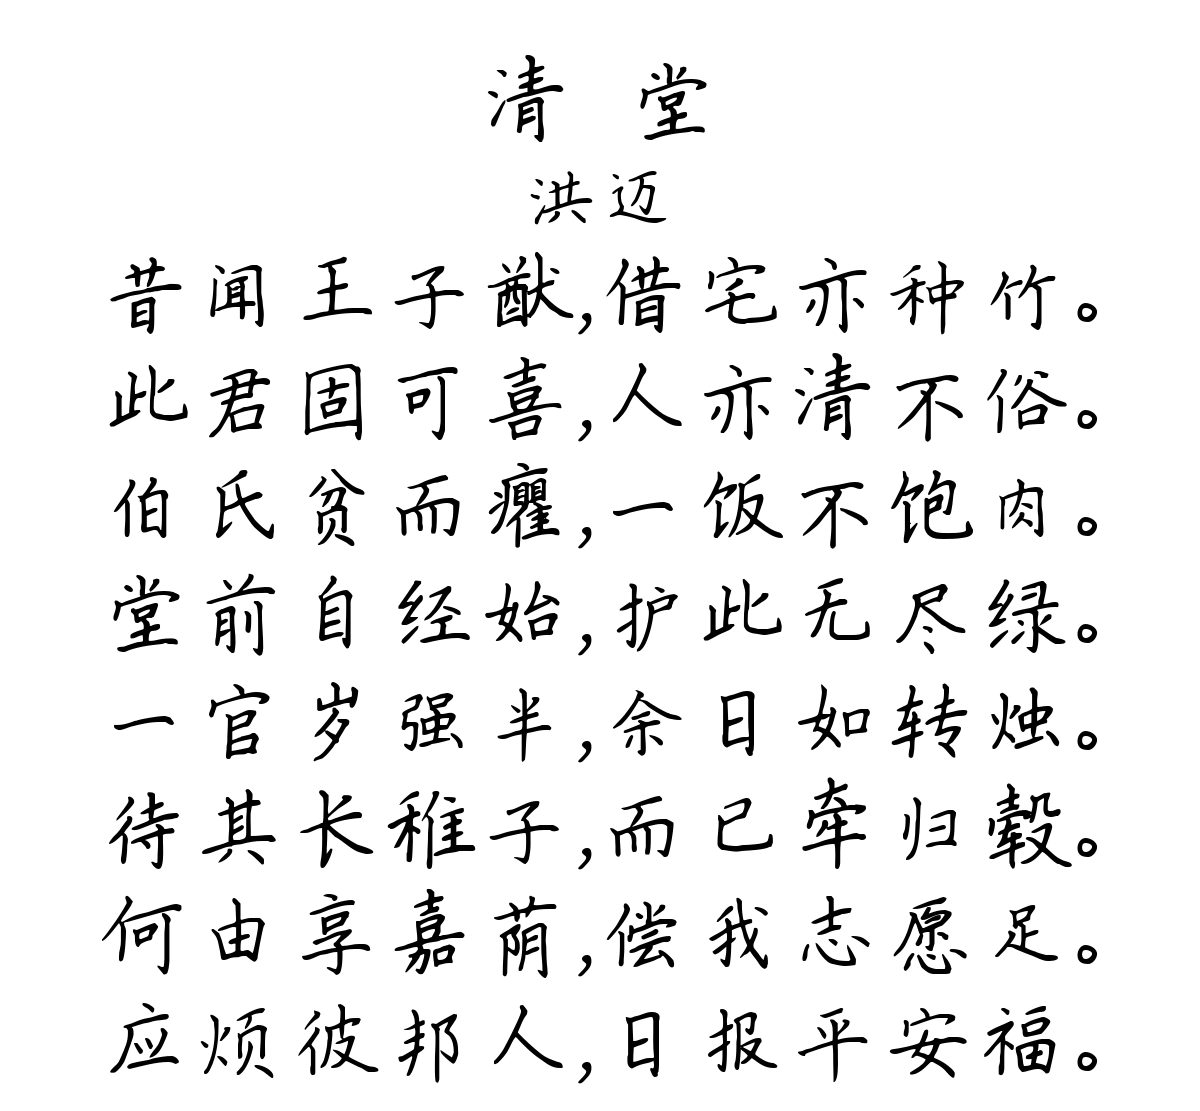 清 堂
洪迈
昔闻王子猷,借宅亦种竹。
此君固可喜,人亦清不俗。
伯氏贫而癯,一饭不饱肉。
堂前自经始,护此无尽绿。
一官岁强半,余日如转烛。
待其长稚子,而已牵归毂。
何由享嘉荫,偿我志愿足。
应烦彼邦人,日报平安福。